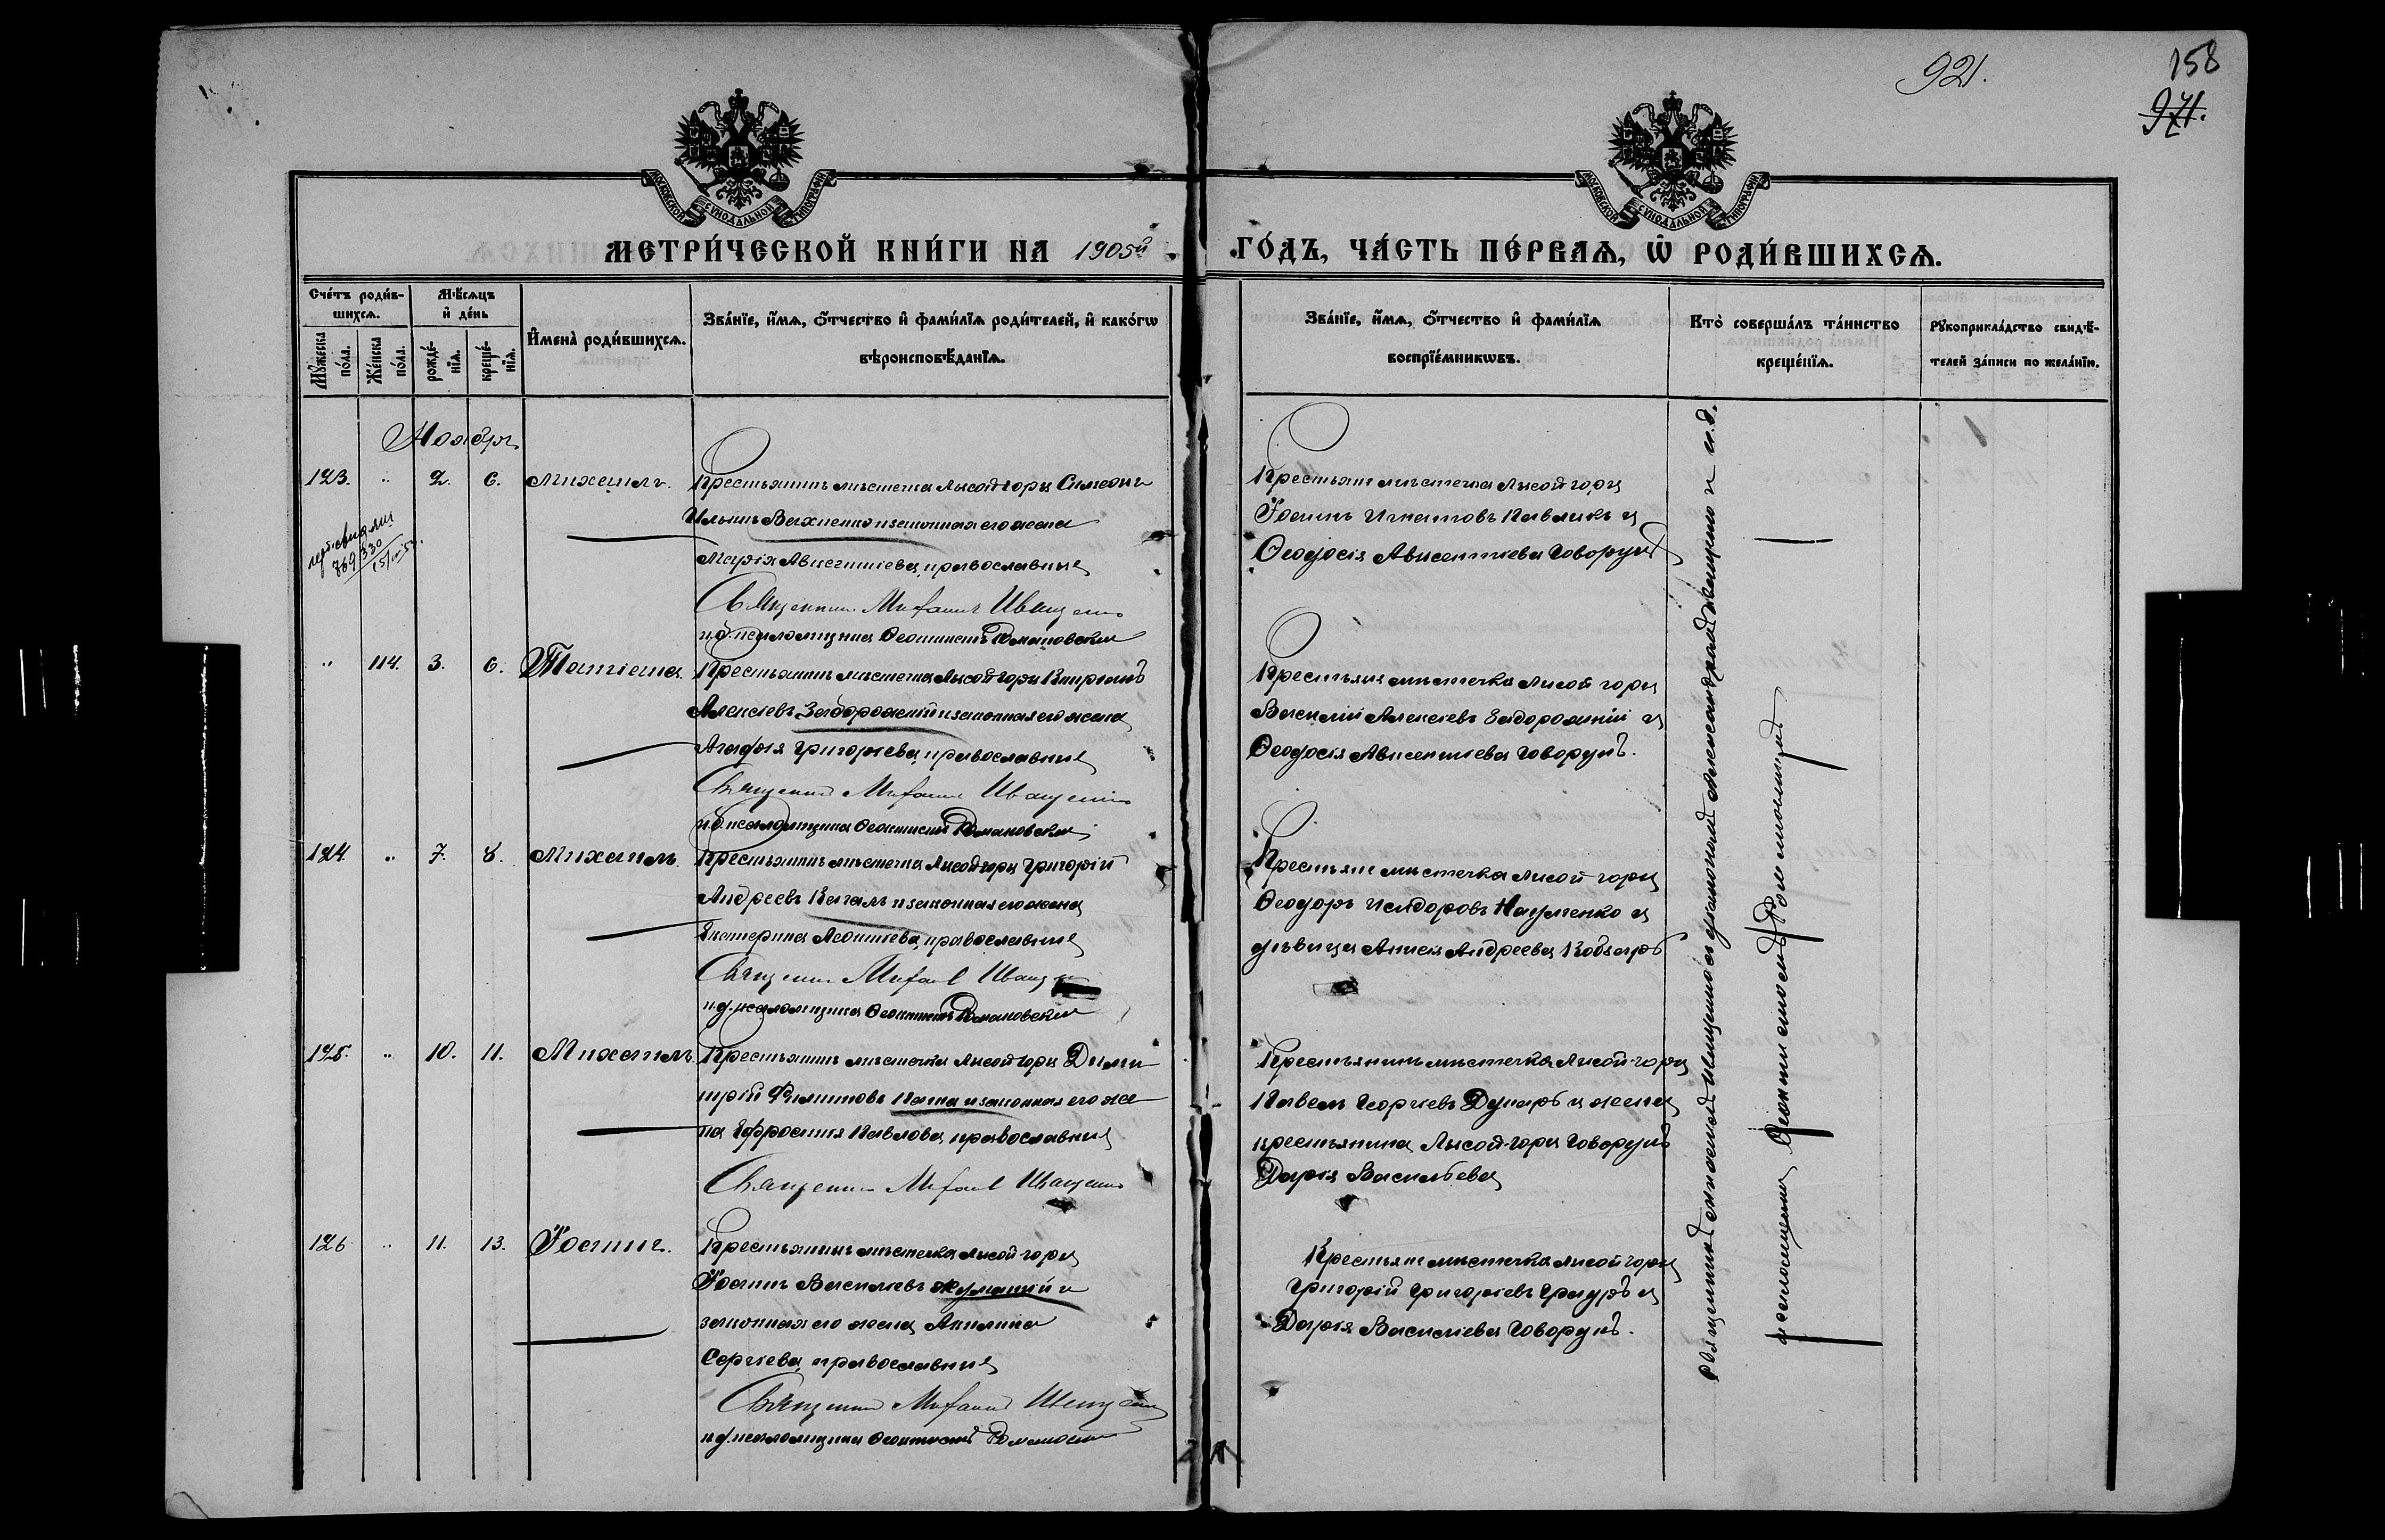 921.
158
971.
МОСКОВСКОЙ СѴНОДАЛЬНОЙ ТИПОГРАФІИ
МОСКОВСКОЙ СѴНОДАЛЬНОЙ ТИПОГРАФІИ
МЕТРИ́ЧЕСКОЙ КНИ́ГИ НА 1905й ГО́ДЪ, ЧА́СТЬ ПЕ́РВАѦ, Ѽ РОДИ́ВШИХСѦ.
Сче́тъ роди́в-
шихсѧ.
Мꙋ́жеска по́ла.
Же́нска по́ла.
Мѣ́сѧцъ
и҆ де́нь
рожде́-нїѧ.
креще́-нїѧ.
И҆мена̀ роди́вшихсѧ.
Зва́нїе, и҆́мѧ, ѻ҆́тчество и҆ фами́лїѧ роди́телей, и҆ како́гѡ
вѣроисповѣ́данїѧ.
Зва́нїе, и҆́мѧ, ѻ҆́тчество и҆ фами́лїѧ
воспрїе́мникѡвъ.
Кто̀ соверша́лъ та́инство
креще́нїѧ.
Рꙋкоприкла́дство свидѣ́-
телей за́писи по жела́нїю.
Ноябрь
123. " 2. 6. Михаилъ. Крестьянинъ мѣстечка Лысой горы Симеонъ
Ильинъ Вахненко и законная его жена
Марія Авксентіева, православные
Священникъ Михаилъ Иващенко
и.д. псаломщика Феоктистъ Романовскій
Крестьяне мѣстечка Лысой горы
Іоаннъ Игнатовъ Павликъ и
Ѳеодосія Авксентіева Говорунъ
" 114. 3. 6. Татіана. Крестьянинъ мѣстечка Лысой горы Кипріанъ
Алексіевъ Задорожній и законная его жена
Агафія Григоріева, православные
Священникъ Михаилъ Иващенко
и.д. псаломщика Феоктистъ Романовскій
Крестьяне мѣстечка Лысой горы
Василій Алексіевъ Задорожній и
Ѳеодосія Авксентіева Говорунъ.
124. " 7. 8. Михаилъ. Крестьянинъ мѣстечка Лысой горы Григорій
Андреевъ Кагалъ и законная его жена
Екатерина Леонтіева, православные
Священникъ Михаилъ Иващенко
и.д. псаломщика Феоктистъ Романовскій
Крестьяне мѣстечка Лысой горы
Ѳеодоръ Исидоровъ Науменко и
дѣвица Анисія Андреева Кобзарь
125. " 10. 11. Михаилъ. Крестьянинъ мѣстечка Лысой горы Дими
трій Филиповъ и законная его же
на Ефросинія Павлова, православные
Священникъ Михаилъ Иващенко
Крестьянинъ мѣстечка Лысой-горы
Павелъ Георгіевъ и жена
крестьянина Лысой-горы Говорунъ
Дарія Васильева
126 " 11. 13. Іоаннъ. Крестьянинъ мѣстечка Лысой горы
Іоаннъ Василіевъ и
законная его жена Акилина
Сергіева, православные
Священникъ Михаилъ Иващенко
и.д. псаломщика Феоктистъ Романовскій
Крестьяне мѣстечка Лысой горы
Григорій Григоріевъ и
Дарія Василіева Говорунъ.
псаломщика Феоктистомъ Романовскимъ